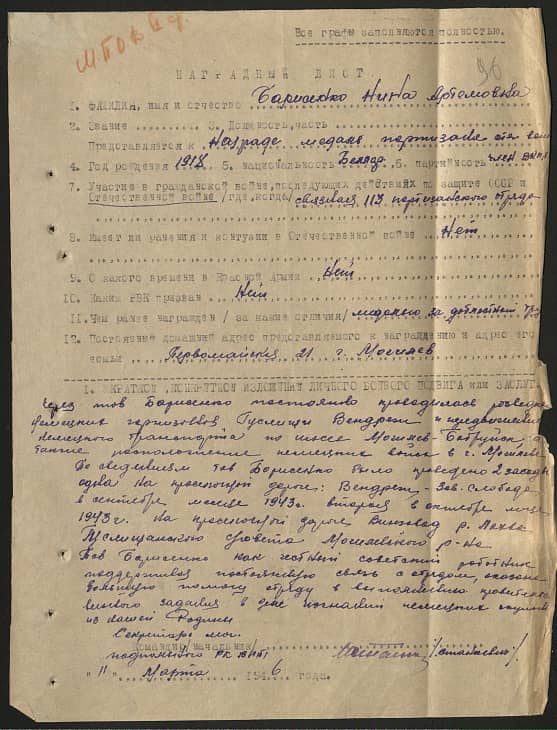 Все графы заполняются полностью.
96
НАГРАДНЫЙ ЛИСТ
1. Фамилия, имя и отчество Борисенко Нина Артемовна
2. Звание 3. Должность, часть
Представляется к награде медаль партизана
4. Год рождения 1918 5. национальность Белар. 6. партийность член ВКП
7. Участие в гражданской войне, последующих действиях по защите СССР и
Отечественной войне /где, когда/ связная 113 партизанского отряда
8. Имеет ли ранения и контузии в Отечественной войне Нет
9. С какого времени в Красной Армии Нет
10. Каким РВК призван Нет
11. Чем ранее награжден /за какие отличия/ медалью за доблестный
12. Постоянный домашний адрес представляемого к награждению и адрес его
семьи Первомайская 21 г. Могилев
1. КРАТКОЕ, КОНКРЕТНОЕ ИЗЛОЖЕНИЕ ЛИЧНОГО БОЕВОГО ПОДВИГА ИЛИ ЗАСЛУГ
Через тов Борисенко постоянно проводилась разведка
немецких гарнизонов Гуслищи Вендреж и
немецкого транспорта по шоссе Могилев-Бобруйск, а
также расположение немецких войск в г. Могилеве
По сведениям тов Борисенко было проведено 2 засады
одна на проселочной дороге: Вендреж - Слобода
в сентябре месяце 1943г. вторая в октябре м-це
1943г. на проселочной дороге р. Лохва
сельсовета Могилевского р-на
Тов Борисенко как честный советский работник
поддерживая постоянную связь с отрядом, оказала
большую помощь отряду в выполнении
задания в деле изгнания немецких
из нашей Родины
Секретарь
Командир /начальник/
подпольного РК ВКП/б/
"11" Марта 1946 года.